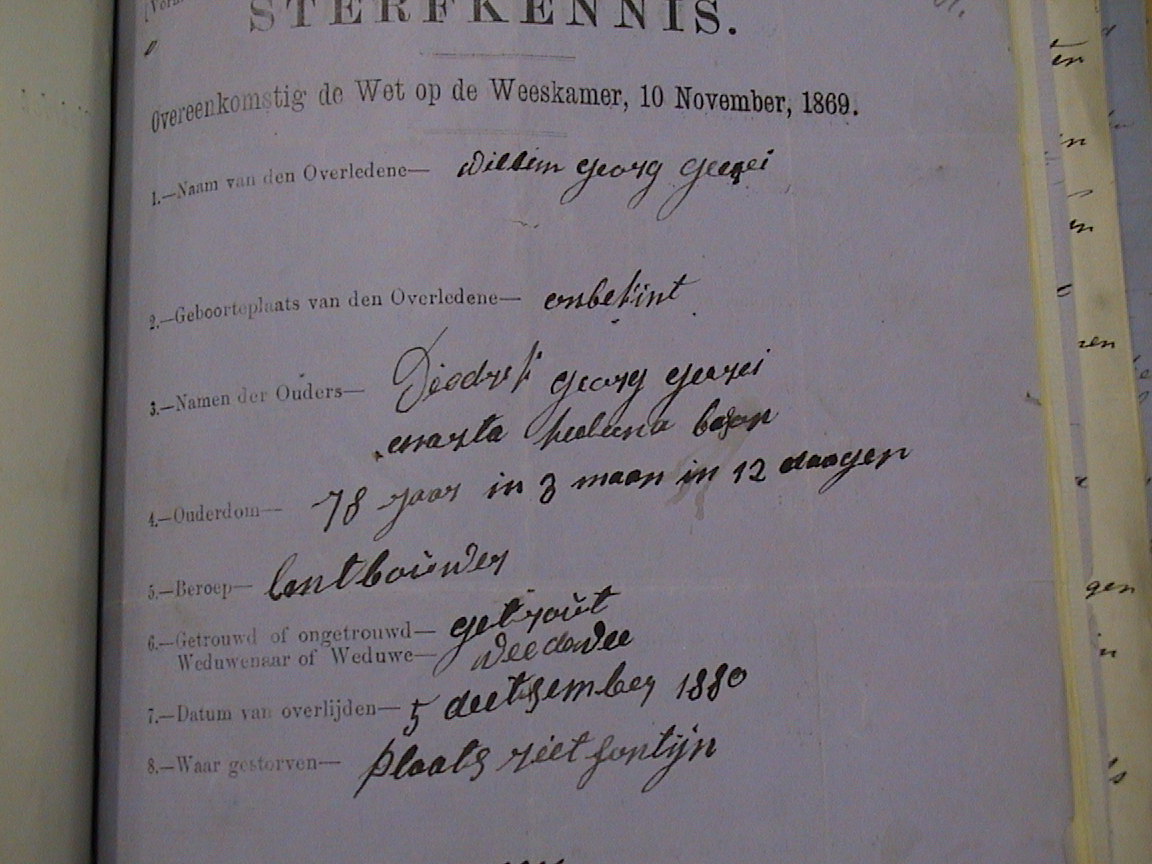 STERFKENNIS.
Overeenkomstig de Wet op de Weeskamer, 10 November, 1869.
1.—Naam van den Overledene— Willim georg
2.—Geboorteplaats van den Overledene— onbekint
3.—Namen der Ouders— Diedrek georg
marta helena
4.—Ouderdom— 78 yaar in 3 maan in 12 daagen
5.—Beroep— lantbouwer
6.—Getrouwd of ongetrouwd— getrout
Weduwenaar of Weduwe— Weedewee
7.—Datum van overlijden— 5 deetsember 1880
8.—Waar gestorven— plaats rietfontijn